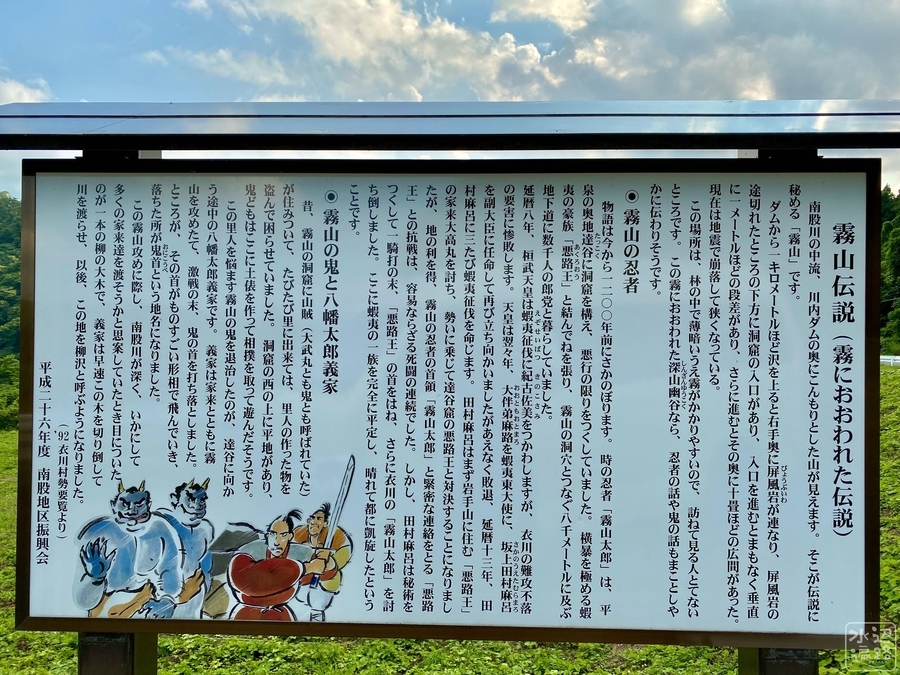 霧山伝説（霧におおわれた伝説）
南股川の中流、川内ダムの奥にこんもりとした山が見えます。そこが伝説に
秘める「霧山」です。
ダムから一キロメートルほど沢を上ると右手奥に屏風岩が連なり、屏風岩の
びょうぶいわ
途切れたところの下方に洞窟の入口があり、入口を進むとまもなく垂直
に一メートルほどの段差があり、さらに進むとその奥に十畳ほどの広間があった。
現在は地震で崩落して狭くなっている。
この場所は、林の中で薄暗いうえ霧がかかりやすいので、訪ねて見る人とてない
ところです。この霧におおわれた深山幽谷なら、忍者の話や鬼の話もまことしや
しんざんゆうこく
かに伝わりそうです。
◉霧山の忍者
物語は今から一二〇〇年前にさかのぼります。時の忍者「霧山太郎」は、平
泉の奥地達谷に洞窟を構え、悪行の限りをつくしていました。横暴を極める蝦
たっこく
夷の豪族「悪路王」と結んでねを張り、霧山の洞穴とつなぐ八千メートルに及ぶ
あくろおう
地下道に数千人の郎党と暮らしていました。
延暦八年、桓武天皇は蝦夷征伐に紀古佐美をつかわしますが、衣川の難攻不落
えぞせいばつ
きのこさみ
の要害に惨敗します。天皇は翌々年、大伴弟麻路を蝦夷東大使に、坂上田村麻呂
おおともおとまろ
さかのうえたむらまろ
を副大臣に任命して再び立ち向かいましたがあえなく敗退、延暦十三年、田
村麻呂に三たび蝦夷征伐を命じます。田村麻呂はまず岩手山に住む「悪路王」
の家来大高丸を討ち、勢いに乗じて達谷窟の悪路王と対決することになりまし
たが、地の利を得、霧山の忍者の首領「霧山太郎」と緊密な連絡をとる「悪路
王」との抗戦は、容易ならざる死闘の連続でした。しかし、田村麻呂は秘術を
つくして一騎打の末、「悪路王」の首をはね、さらに衣川の「霧山太郎」を討
ち倒しました。ここに蝦夷の一族を完全に平定し、晴れて都に凱旋したという
ことです。
◉霧山の鬼と八幡太郎義家
昔、霧山の洞窟に山賊（大武丸とも鬼とも呼ばれていた）
が住みついて、たびたび里に出来ては、里人の作った物を
盗んで困らせていました。洞窟の西の上に平地があり、
鬼どもはここに土俵を作って相撲を取って遊んだそうです。
この里人を悩ます霧山の鬼を退治したのが、達谷に向か
う途中の八幡太郎義家です。義家は家来とともに霧
山を攻めたて、激戦の末、鬼の首を打ち落としました。
ところが、その首がものすごい形相で飛んでいき、
落ちた所が鬼首という地名になりました。
おにこうべ
この霧山攻めに際し、南股川が深く、いかにして
多くの家来達を渡そうかと思案していたとき目についた
のが一本の柳の大木で、義家は早速この木を切り倒して
川を渡らせ、以後、この地を柳沢と呼ぶようになりました。
（'92 衣川村勢要覧より）
平成二十六年度 南股地区振興会